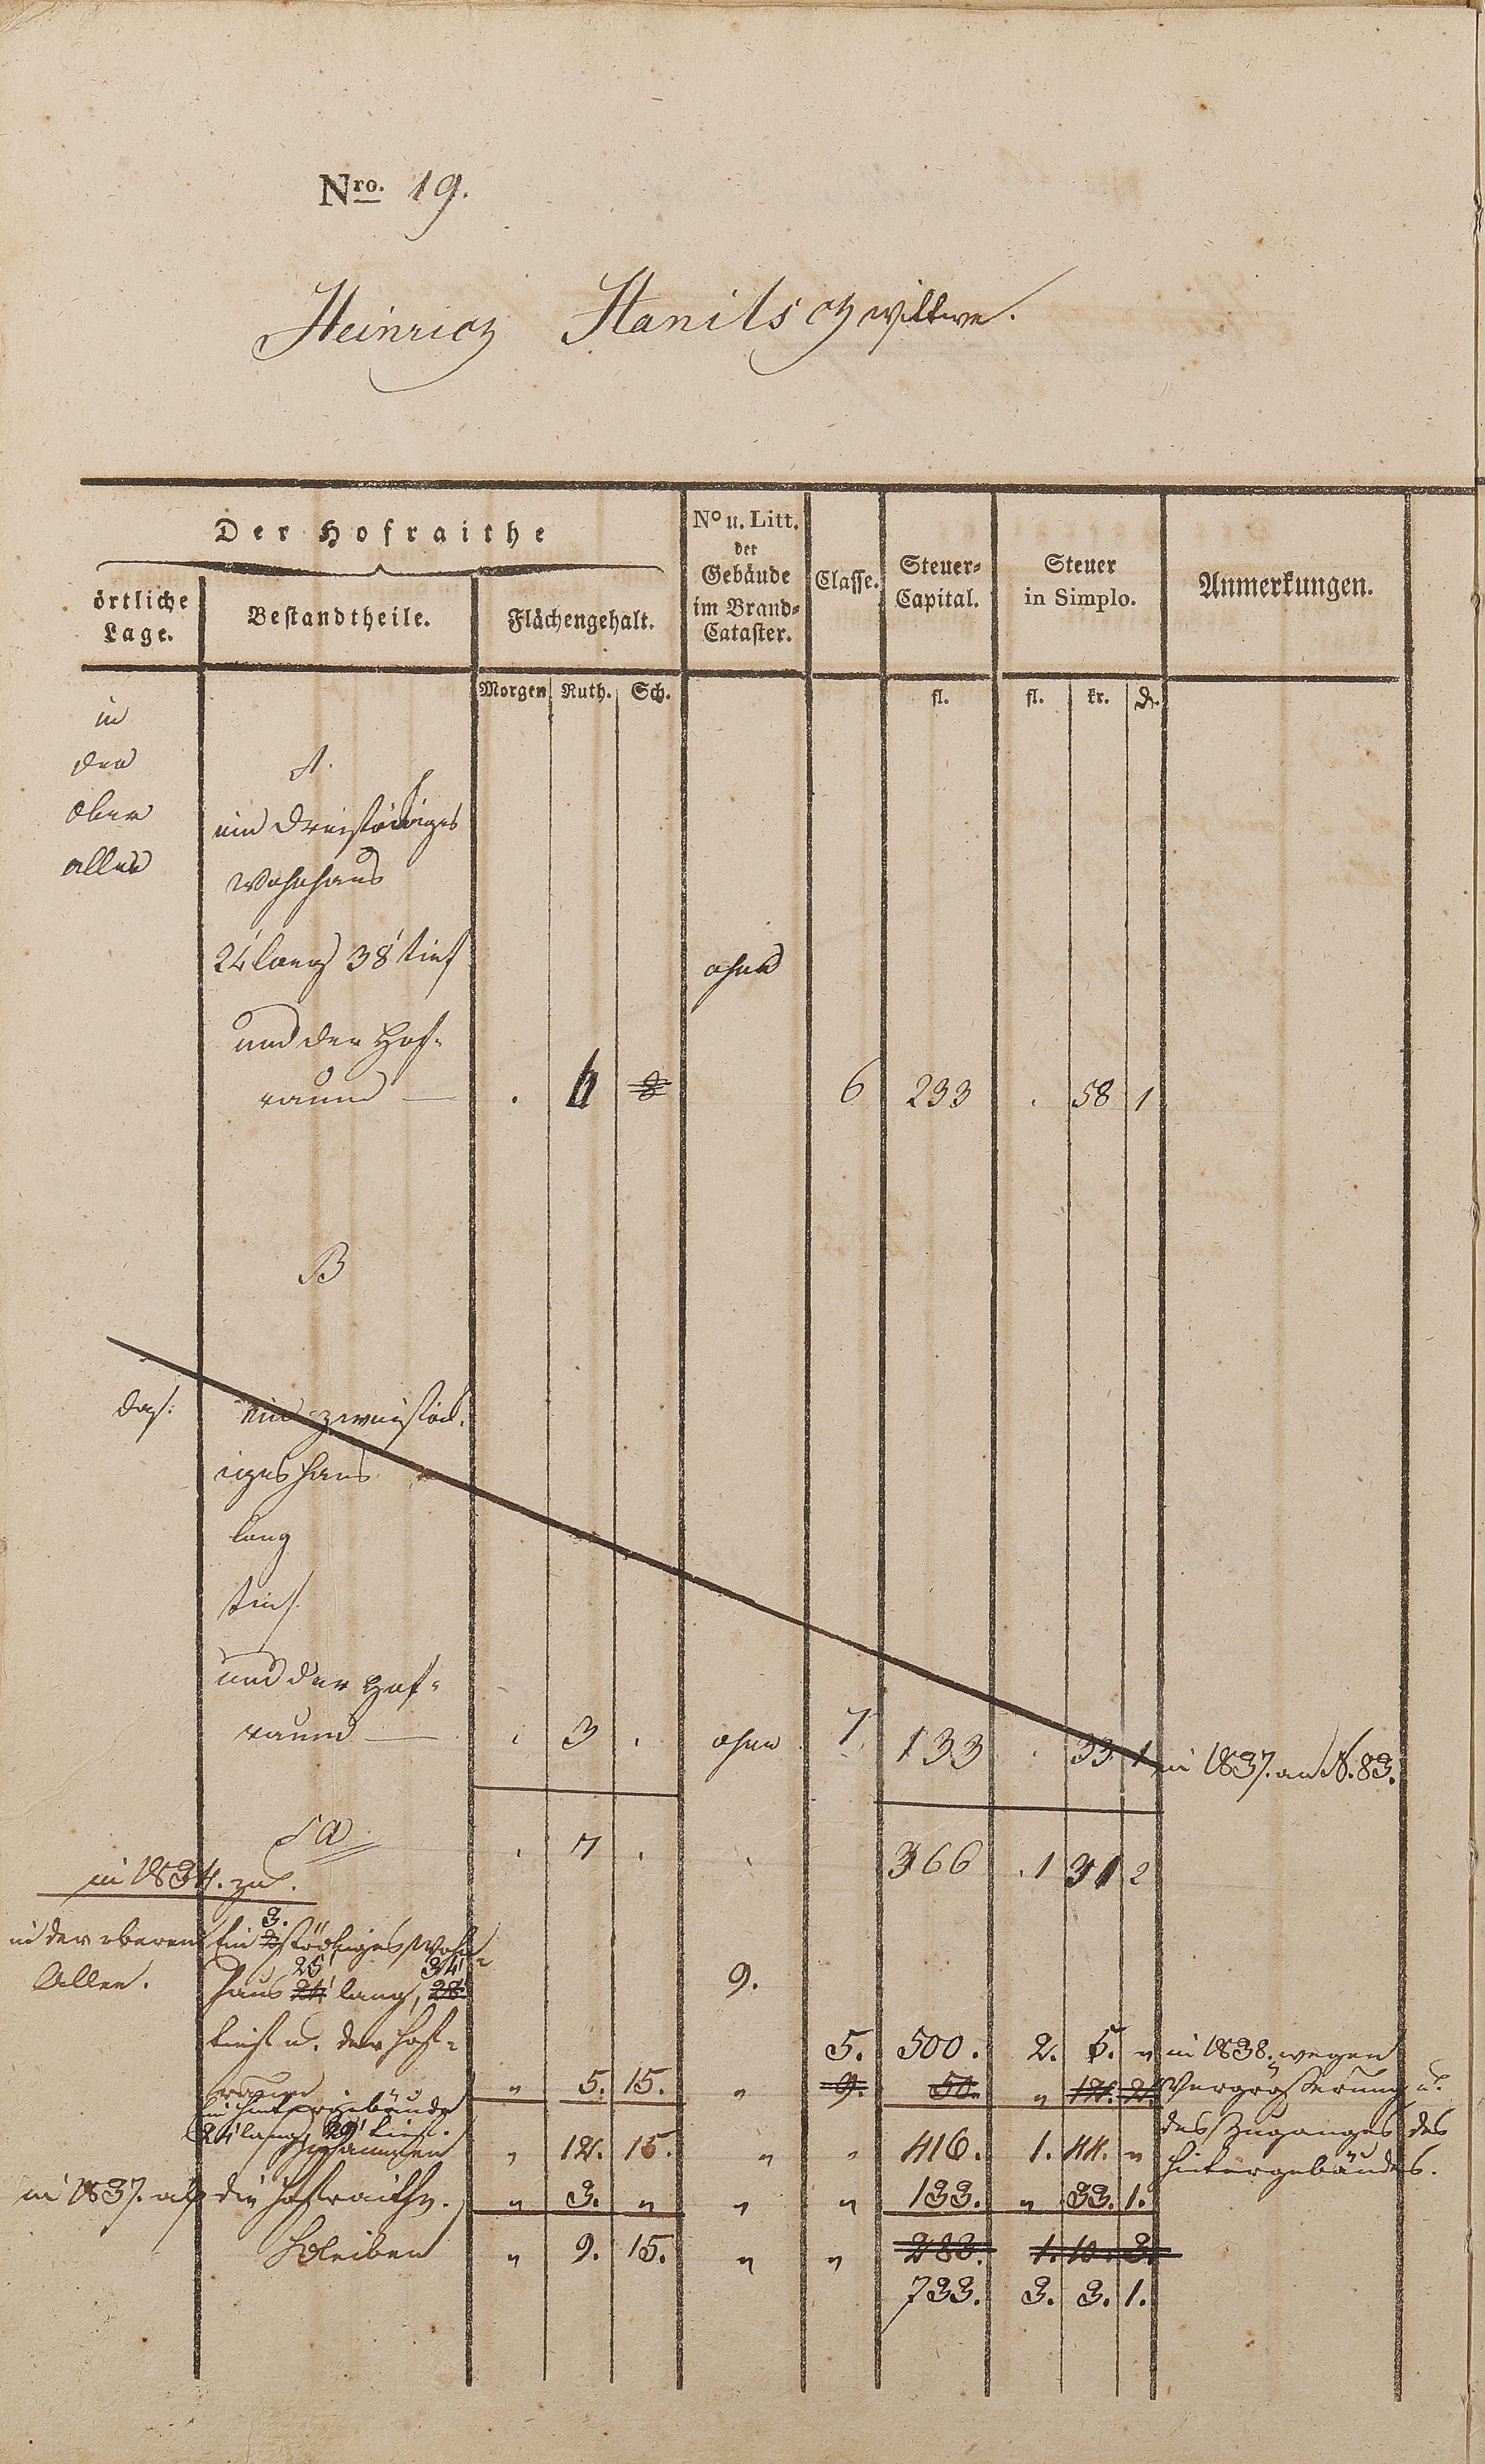 Nro. 19.
Heinrich Hanitsch wittwe.
Der Hofraithe
örtliche Lage.
Bestandtheile.
Flächengehalt.
No u. Litt. der Gebäude im Brand-Cataster.
Classe.
Steuer-Capital.
Steuer in Simplo.
Anmerkungen.
Morgen Ruth. Sch.
fl. fl. kr. d.
in
der
ober
allee
A.
ein dreistöckiges
Wohnhaus
24' lang 38' tief
ohne
und der Hof-
raum — . 4 8 6 233 . 58 1
B
das: ein zweistöck-
iges Haus
lang
tief
und der Hof-
raum — . 3 . ohne 7 133 . 33 1 in 1837. an N. 83.
Sa . 7 . 366 . 1 31 2
in 1834. zu.
in der oberen Ein 2 3. stöckiges Wohn-
Allee. haus 24' 25' lang, 28' 34' 9.
tief u. der Hof- 5. 500. 2. 5. " in 1838. wegen
raum " 5. 15. " 9. 50. " 12. 2. Vergrößerung u.
ein Hintergebäude
24' lang, 29' tief.
des Zuganges des
Hintergebäudes.
Zusammen " 12. 15. " " 416. 1. 44. "
in 1837. ab die Hofraithe. " 3. " " " 133. " 33. 1.
bleiben " 9. 15. " " 283. 1. 10. 3.
733. 3. 3. 1.